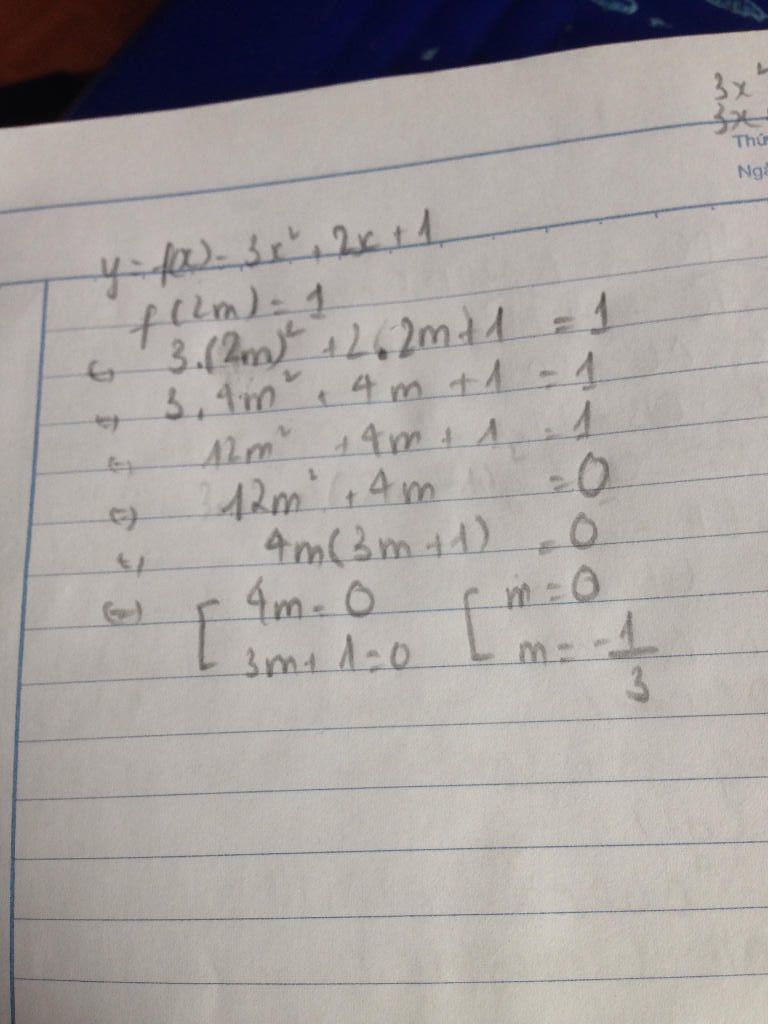 3x²
3x
Thứ
Ngà
y = f(x) = 3x² + 2x + 1
f(2m) = 1
⇔ 3.(2m)² + 2.2m + 1 = 1
⇔ 3.4m² + 4m + 1 = 1
⇔ 12m² + 4m + 1 = 1
⇔ 12m² + 4m = 0
⇔ 4m(3m + 1) = 0
⇔ [ 4m = 0 [ m = 0
3m + 1 = 0 m = -1/3